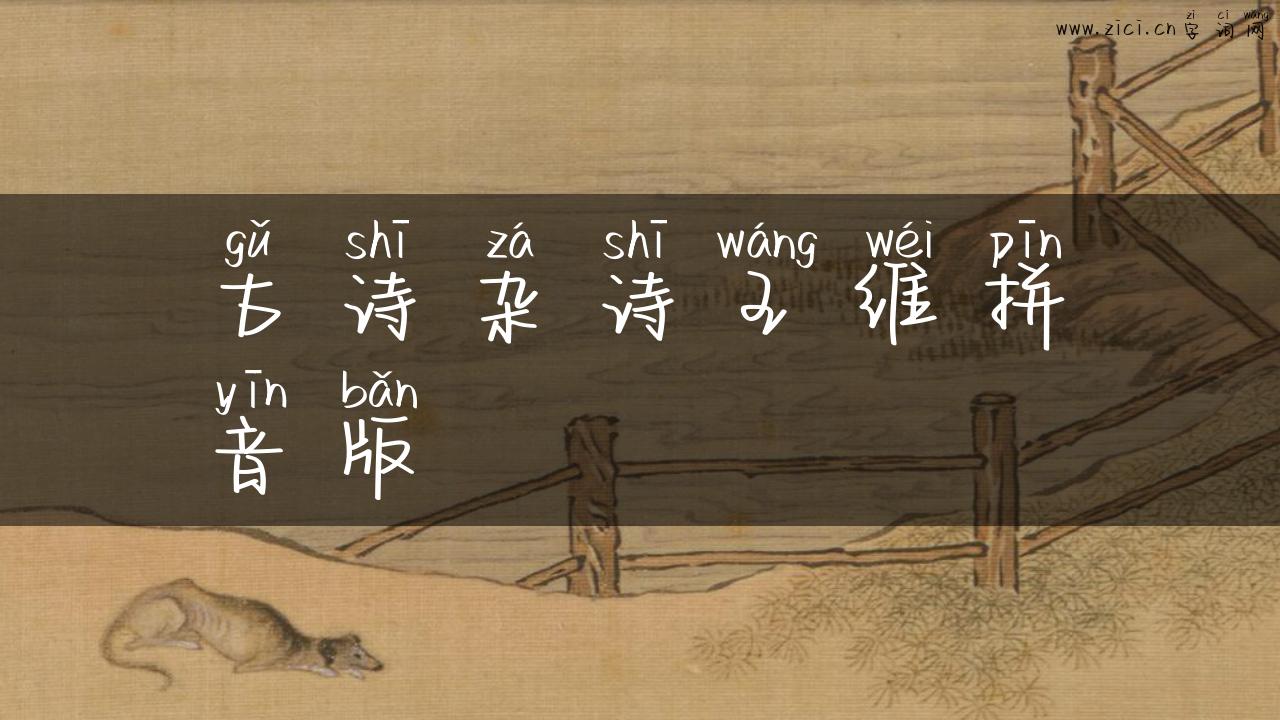 zì cí wǎng
www.zici.cn 字词网
gǔ shī zá shī wáng wéi pīn
古诗杂诗王维拼
yīn bǎn
音版